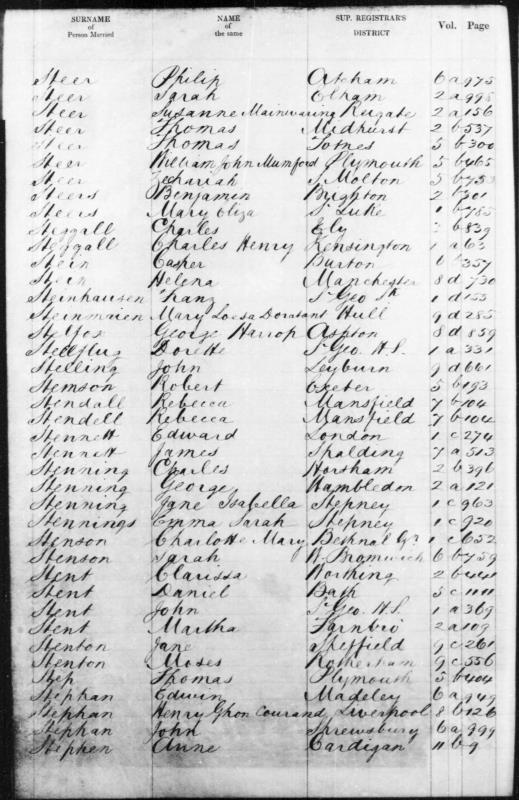 SURNAME of Person Married NAME of the same SUP. REGISTRAR'S DISTRICT Vol. Page
Steer Philip Atcham 6a 975
Steer Sarah Elham 2a 995
Steer Susanne Mainwaring Reigate 2a 156
Steer Thomas Midhurst 2b 537
Steer Thomas Totnes 5b 300
Steer William John Mumford Plymouth 5b 465
Steer Zechariah S. Molton 5b 753
Steers Benjamin Brighton 2b 301
Steers Mary Eliza St Luke 1b 785
Steggall Charles Ely 3b 839
Steggall Charles Henry Kensington 1a 63
Stein Casper Burton 6b 357
Stein Helena Manchester 8d 730
Steinhausen Franz St Geo 1d 155
Mary Hull 9d 285
Stelfox George Harrop Ashton 8d 859
Stellflug Dorette St Geo. H.S. 1a 331
Stelling John Leyburn 9d 661
Stemson Robert Exeter 5b 193
Stendall Rebecca Mansfield 7b 104
Stendell Rebecca Mansfield 7b 104
Stennett Edward London 1c 274
Stennett James Spalding 7a 513
Stenning Charles Horsham 2b 396
Stenning George Hambledon 2a 121
Stenning Jane Isabella Stepney 1c 963
Stennings Emma Sarah Stepney 1c 920
Stenson Charlotte Mary Bethnal Gn 1c 652
Stenson Sarah W. Bromwich 6b 759
Stent Clarissa Worthing 2b 441
Stent Daniel Bath 5c 1111
Stent John St Geo. H.S. 1a 369
Stent Martha Farnbro 2a 109
Stenton Jane Sheffield 9c 261
Stenton Moses Rotherham 9c 556
Step Thomas Plymouth 5b 404
Stephan Edwin Madeley 6a 949
Stephan Henry Courand Liverpool 8b 126
Stephan John Shrewsbury 6a 999
Stephen Anne Cardigan 11b 9